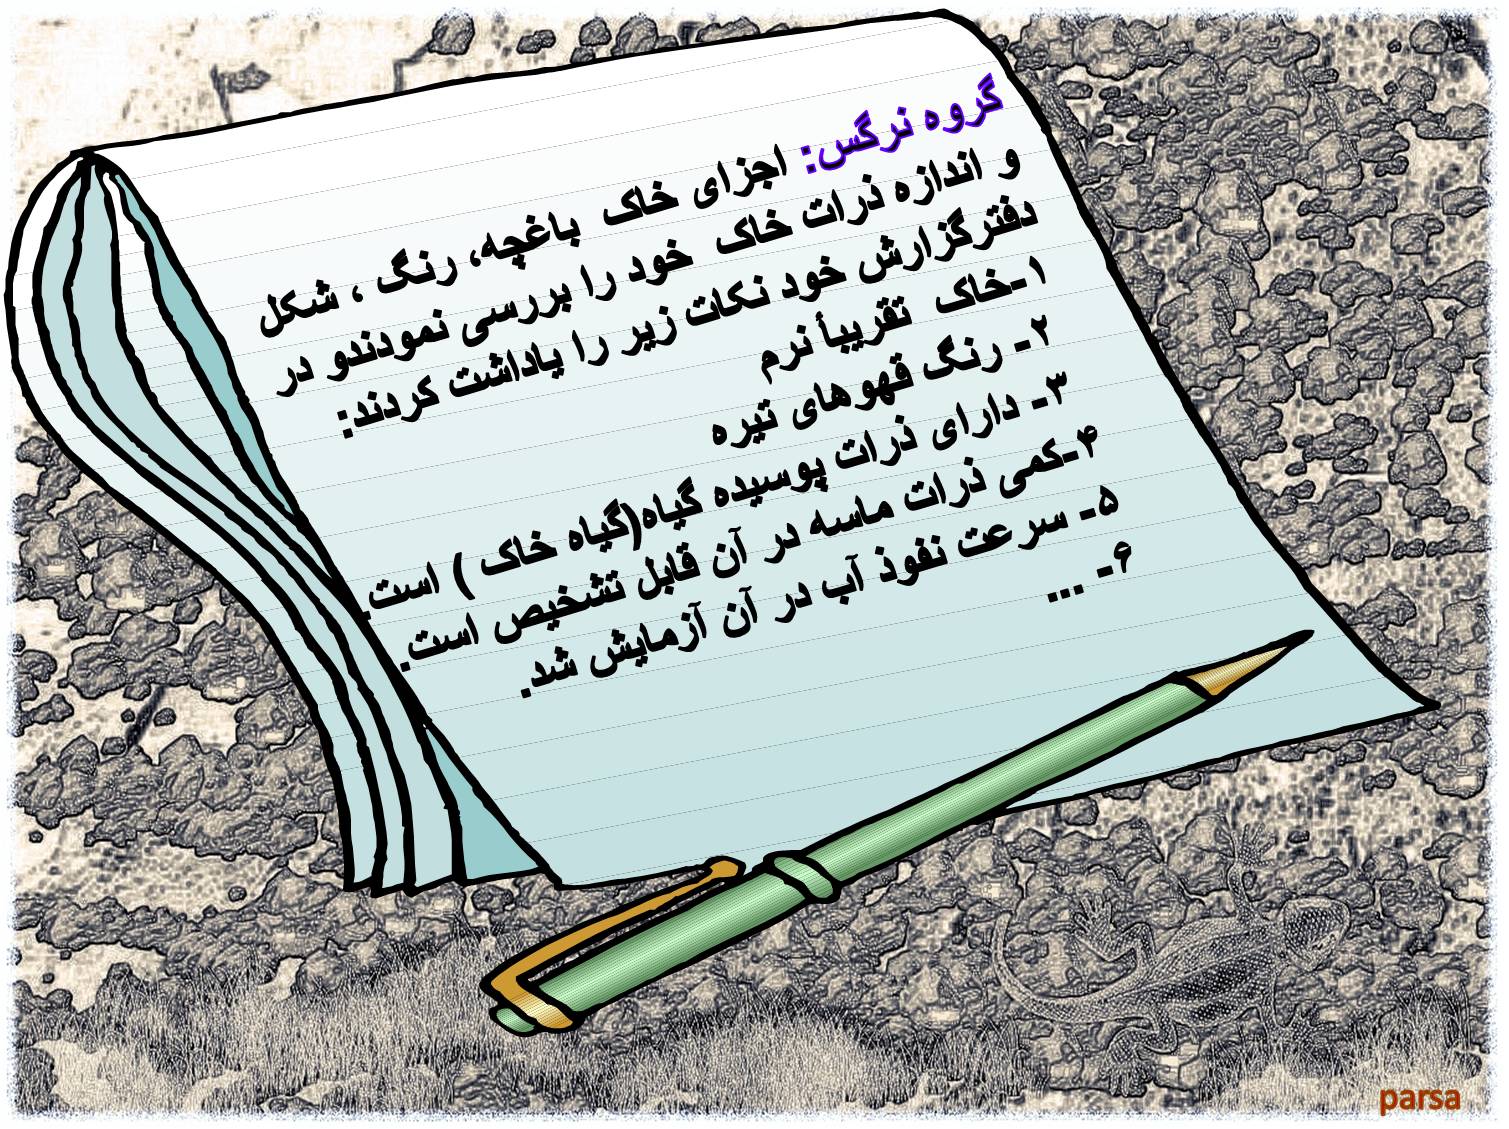 گروه نرگس: اجزای خاک باغچه، رنگ ، شکل
و اندازه ذرات خاک خود را بررسی نمودندو در
دفترگزارش خود نکات زیر را یاداشت کردند:
۱-خاک تقریبأ نرم
۲- رنگ قهوهای تیره
۳- دارای ذرات پوسیده گیاه(گیاه خاک ) است.
۴-کمی ذرات ماسه در آن قابل تشخیص است.
۵- سرعت نفوذ آب در آن آزمایش شد.
۶- ...
parsa